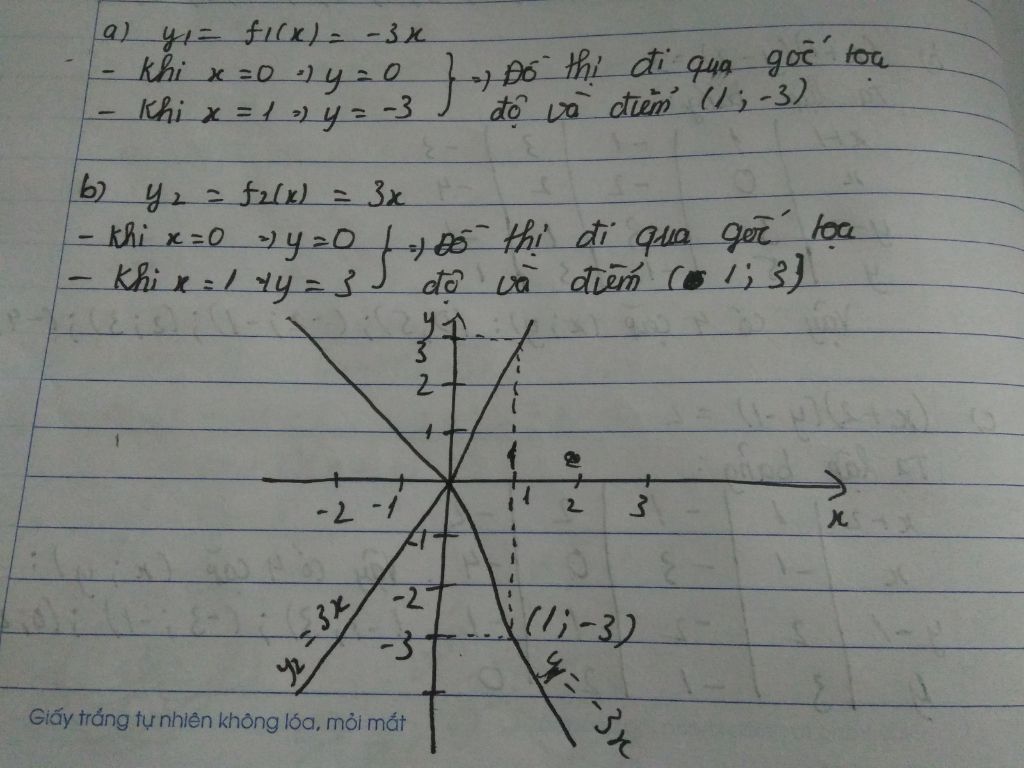 a) y1 = f1(x) = -3x
- Khi x=0 => y=0 } => Đồ thị đi qua gốc tọa
- Khi x=1 => y=-3 độ và điểm (1; -3)
b) y2 = f2(x) = 3x
- Khi x=0 => y=0 } => Đồ thị đi qua gốc tọa
- Khi x=1 => y=3 độ và điểm (1; 3)
y
3
2
1
-2 -1 1 2 3
x
-1
-2
-3
(1; -3)
y2 = 3x
y = -3x
Giấy trắng tự nhiên không lóa, mỏi mắt